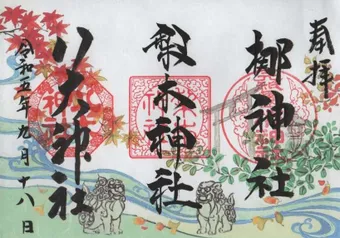 奉拝
梛神社
梨木神社
八大神社
令和五年九月十八日